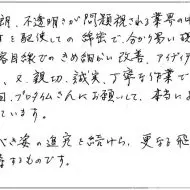 朗、不透明さが問題視される業界の中
を配慮しての 綿密で、分かり易い
客目線でのきめ細かい改善、アイディ
、又、親切、誠実、丁寧な作業で
回、プロタイムさんにお願いして、本当に
ています。
べき姿の追究を続けられ、更なる飛
するものです。